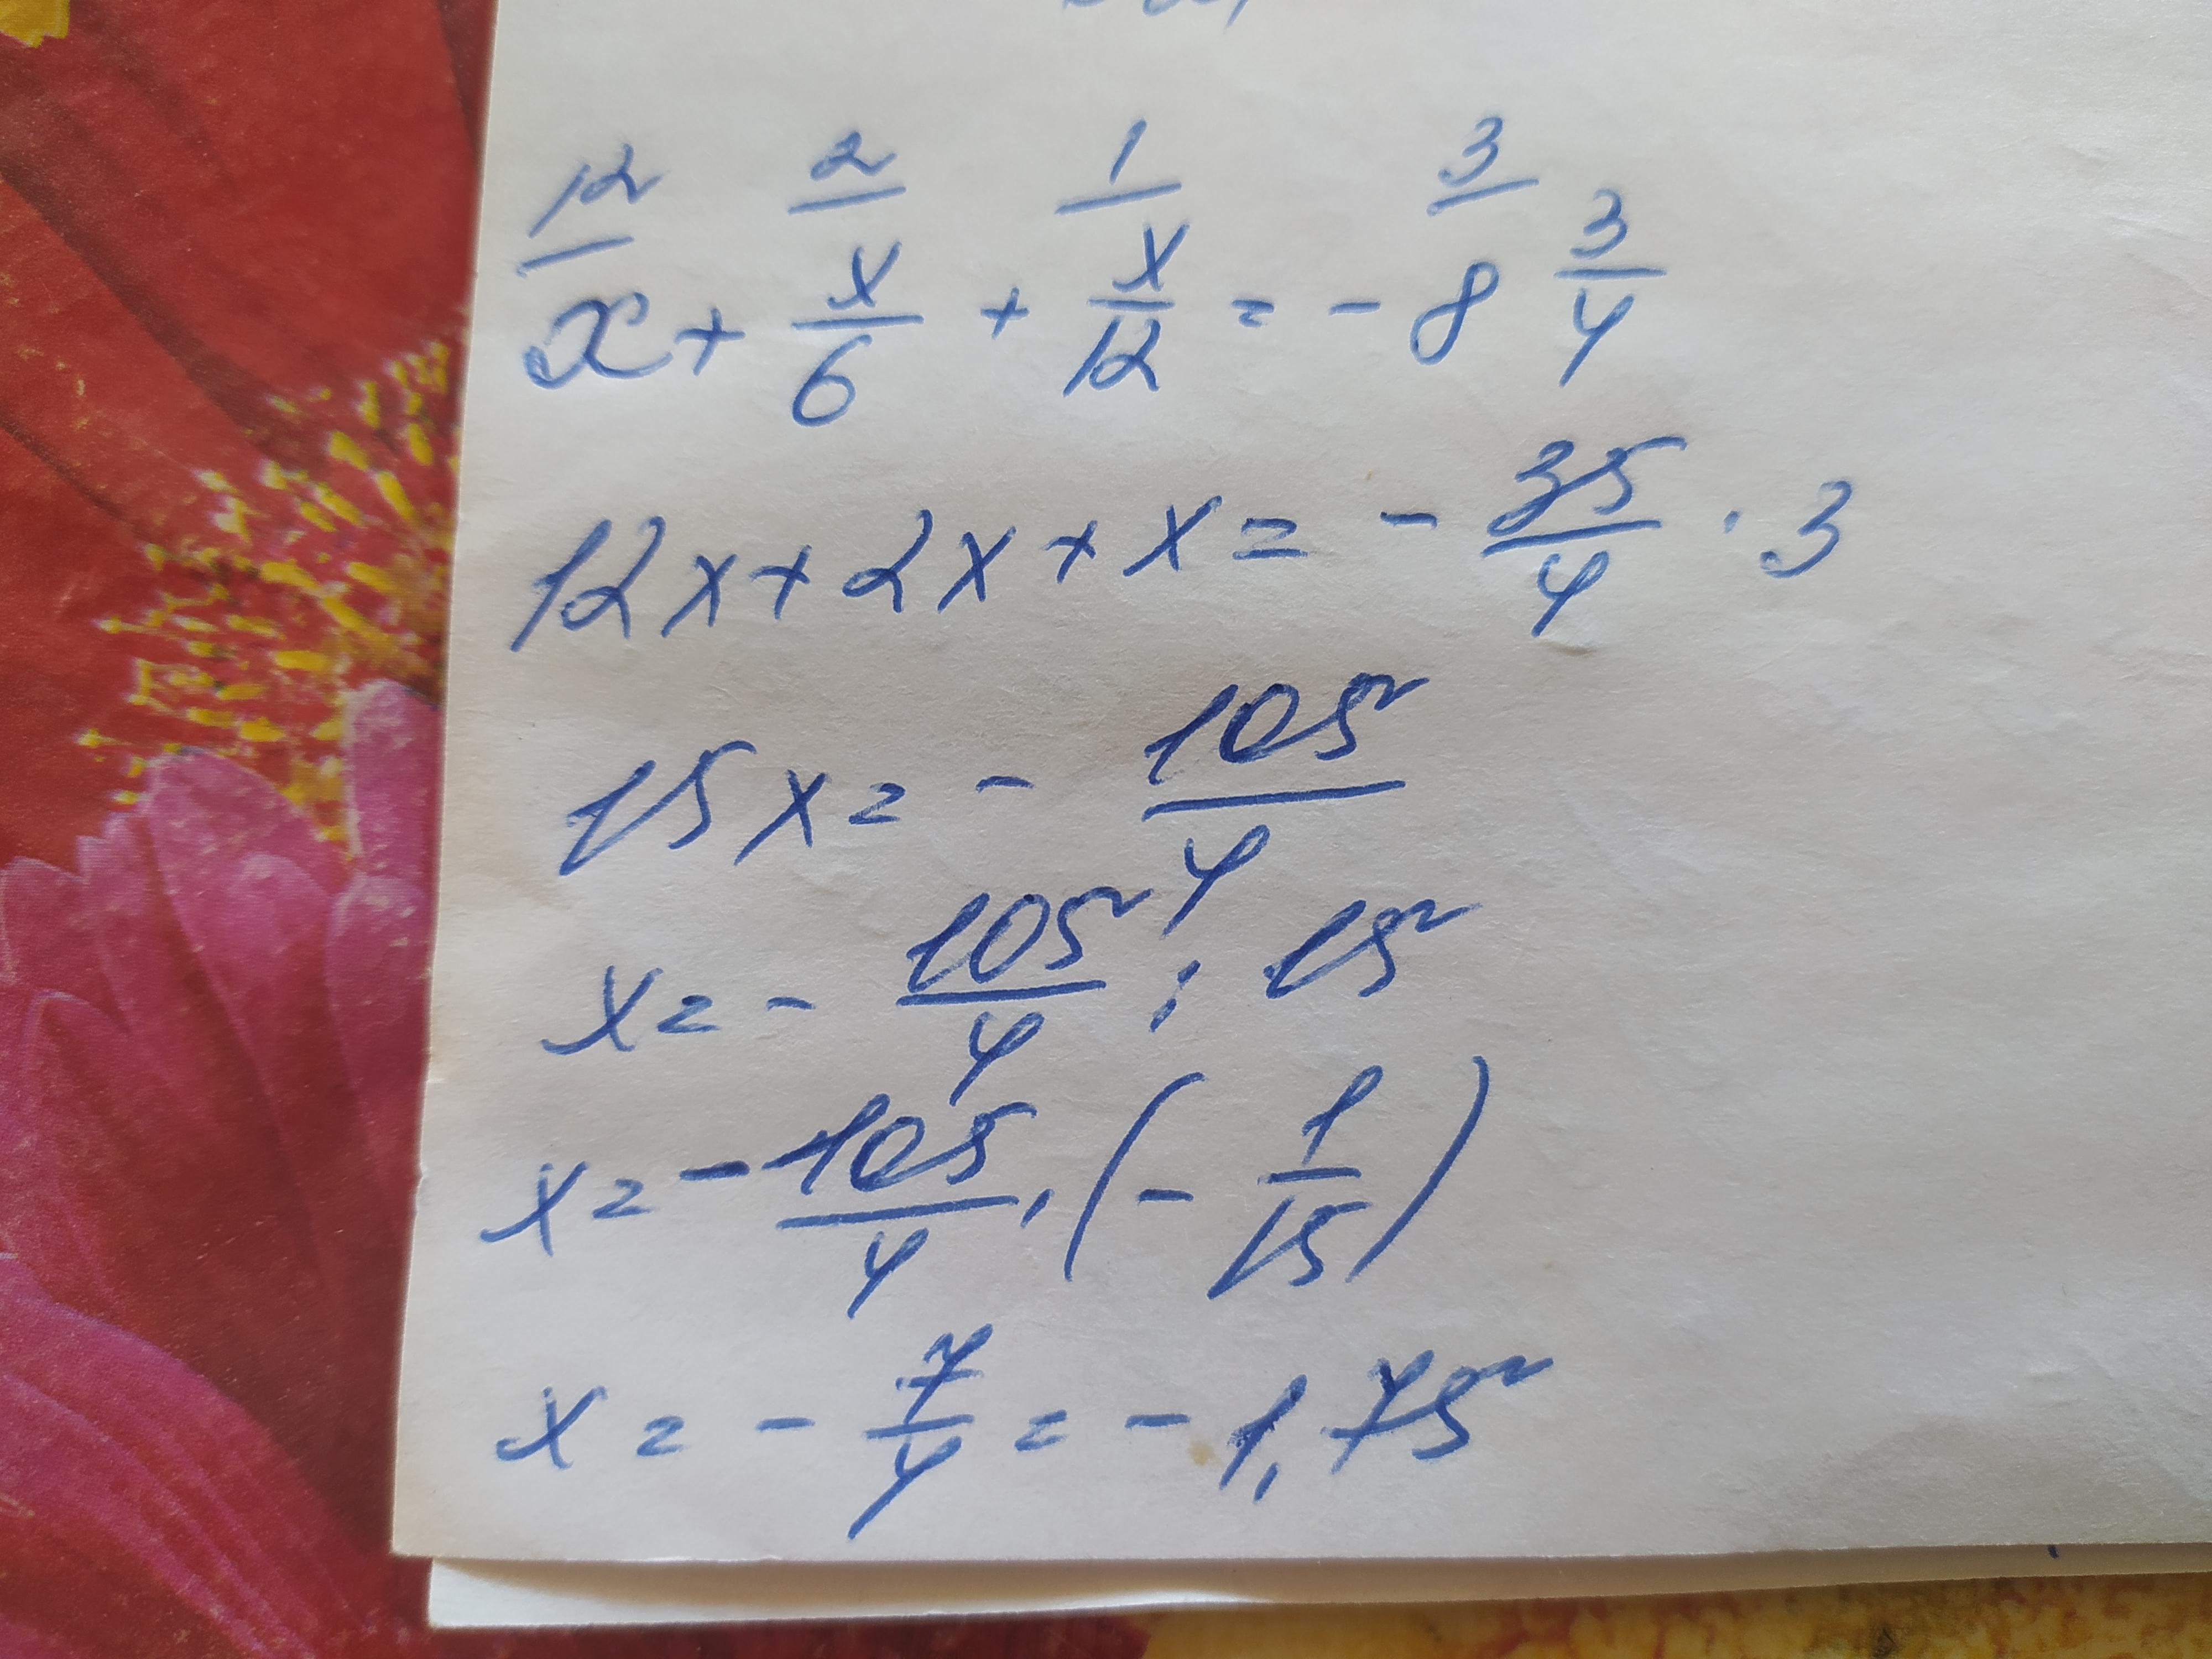 12/ 2/ 1/ 3/
x + x/6 + x/12 = - 8 3/4
12x + 2x + x = - 35/4 · 3
15x = - 105/4
x = - 105/4 : 15
x = - 105/4 · (- 1/15)
x = - 7/4 = - 1,75